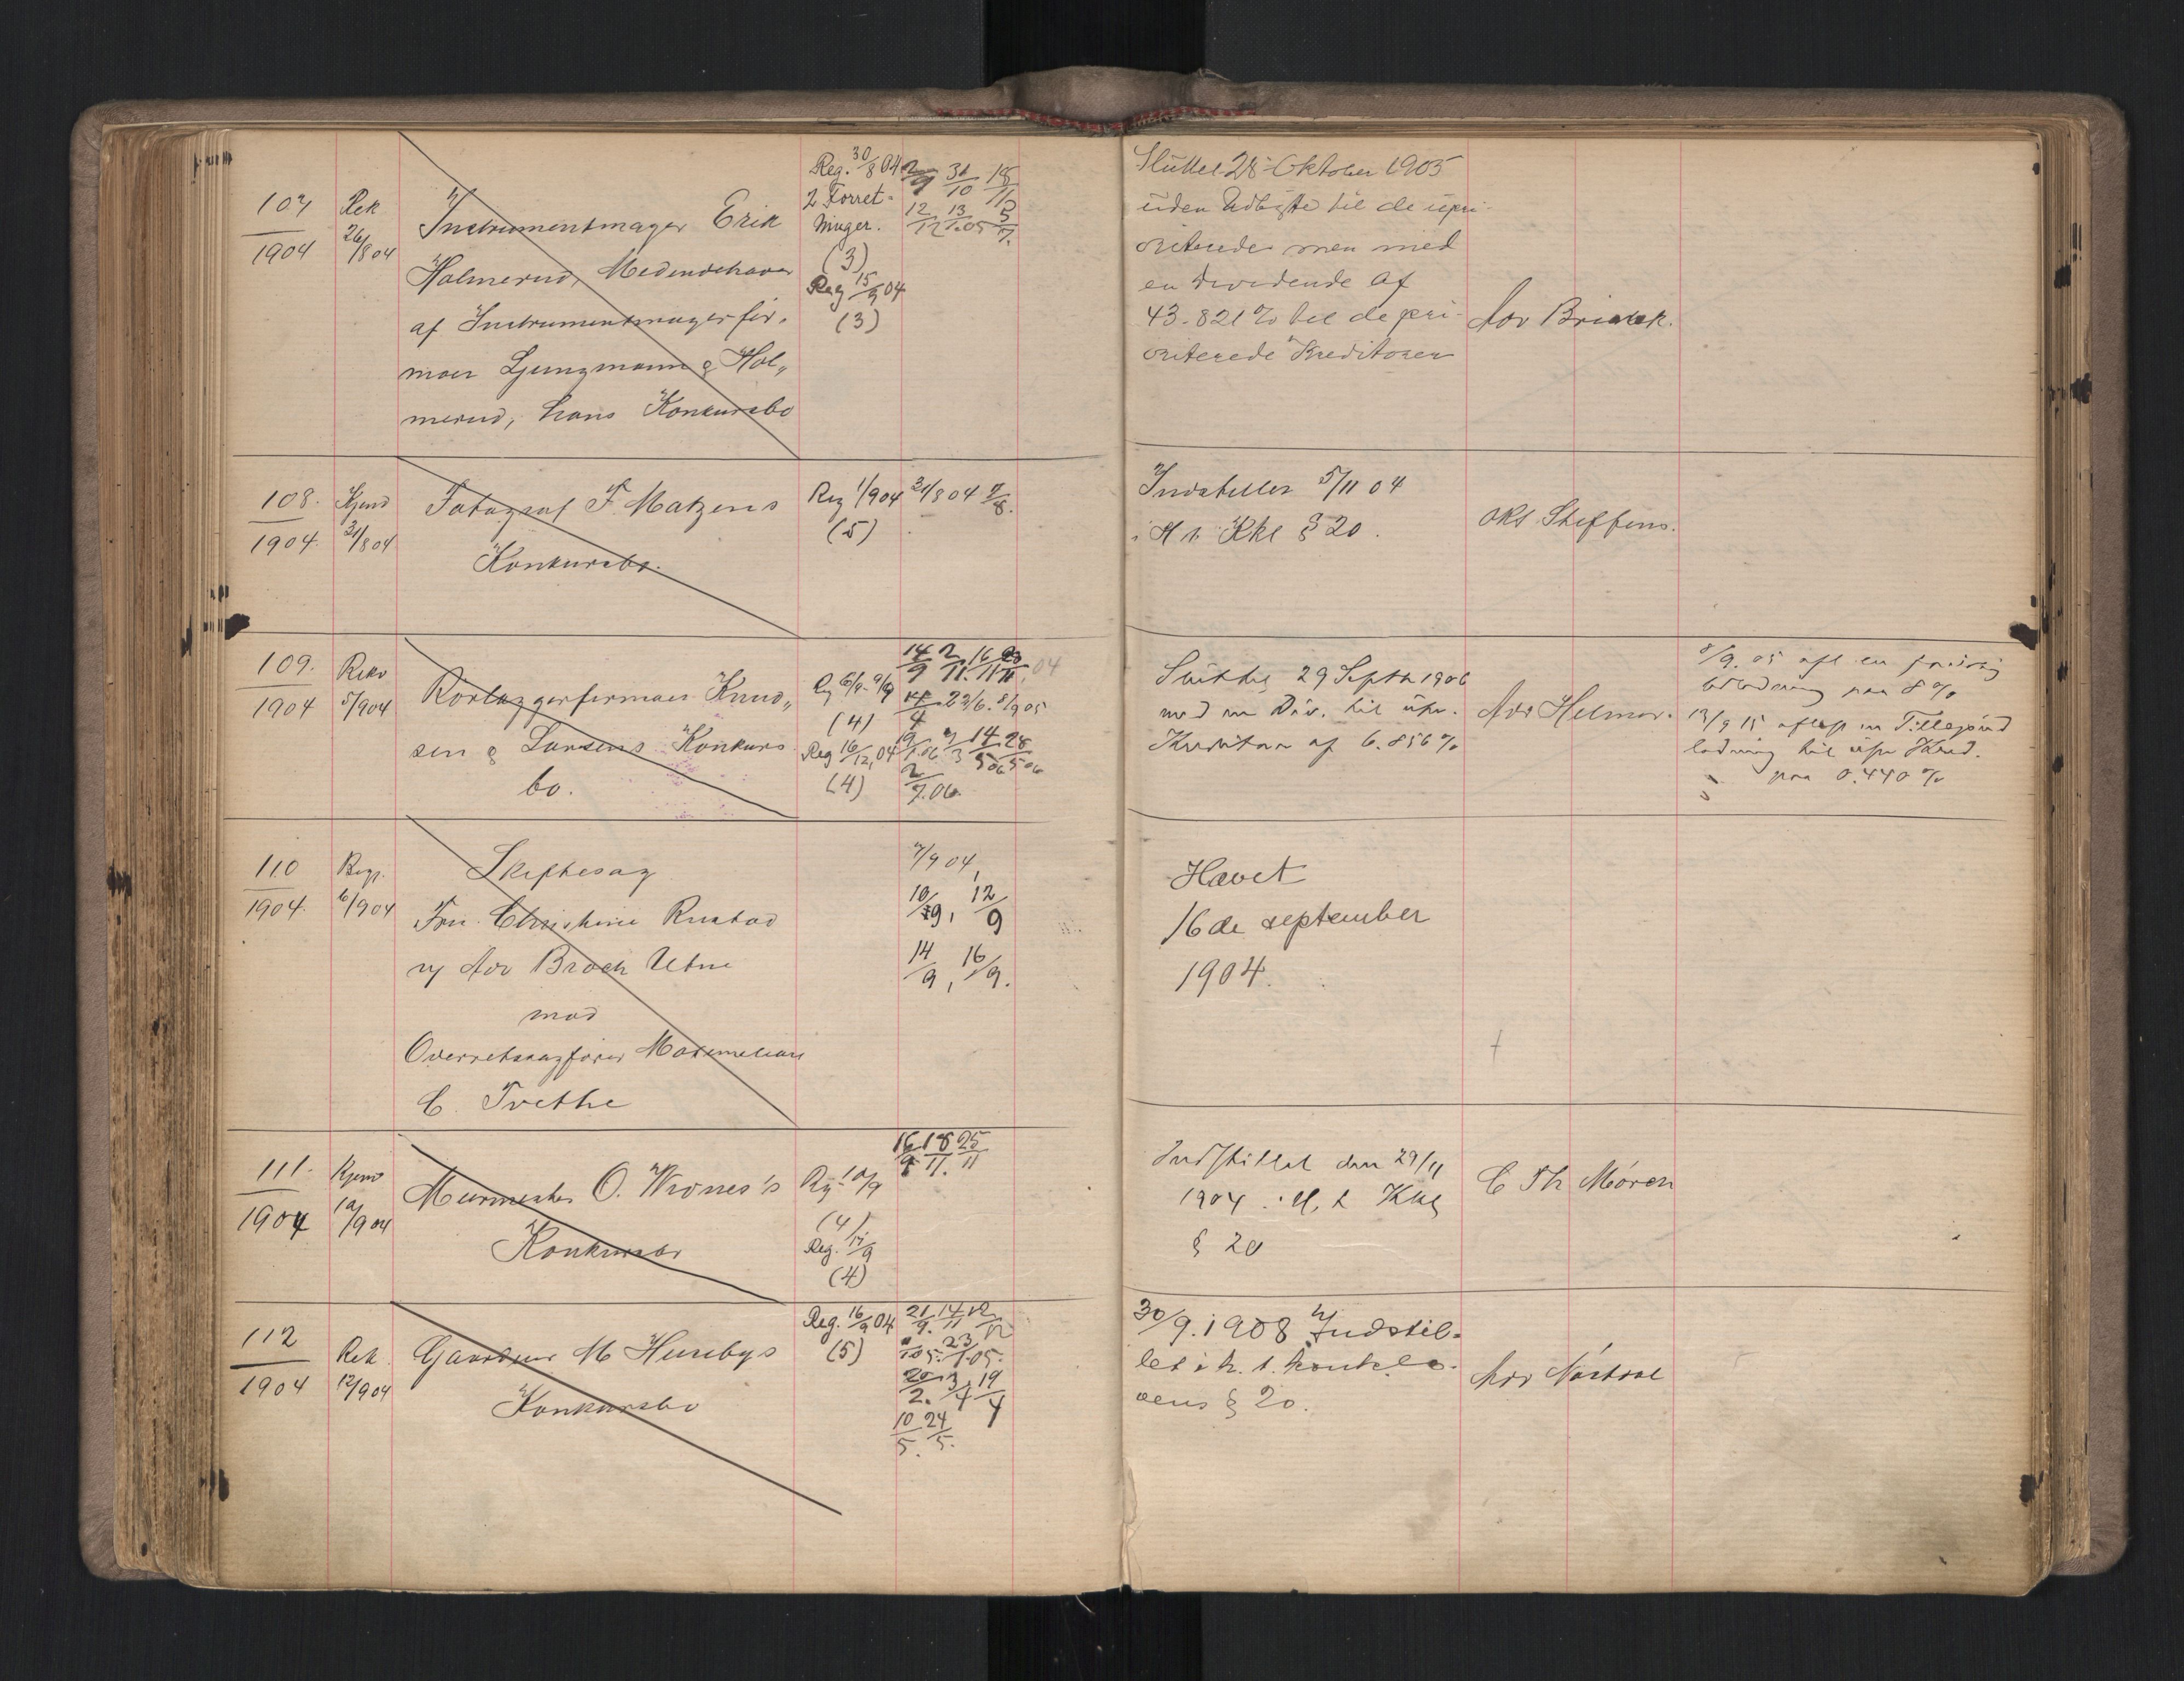 107
1904
Rek
26/8 04
Instrumentmager Erik
Holmerud, Medindehaver
af Instrumentmagerfir-
maer Ljungmann & Hol„
merud, hans Konkursbo
Reg. 30/8 04
2 Forret-
ninger.
(3)
Reg 15/9 04
(3)
2/9 31/10 18/11
12/12 13/1.05
Sluttet 28 Oktober 1905
uden Udbytte til de upri-
oriterede men med
en dividende af
43.821% til de pri-
oriterede Kreditorer
108.
1904.
Kjend
31/8 04
Fotograf F. Matzens
Konkursbo.
Reg 1/9 04
(5)
31/8 04
Indstillet 5/11 04
i H. t. Kkl § 20.
ORS Steffens.
109.
1904
Rekv
5/9 04
Rörlæggerfirmaer Knud„
sen & Larsens Konkurs
bo.
(4)
Reg 16/12, 04
(4)
14/9 2/11. 16/11
22/6. 8/9 05
14/5 06 28/5 06
2/7.06.
Sluttet 29 Septbr 1906
med en Div. til upr.
Kreditorer af 6.856%
Adv Helmer.
8/9. 05 afl en foreløbig
udlodning paa 8%
paa 0.440%
110
1904.
Begj.
6/9 04
Skiftesag
Fru Christine Rustad
v/ Adv Broch Utne
mod
Overretssagfører Maximilian
C. Tvethe
7/9 04,
10/9, 12/9
14/9, 16/9.
Hævet
16 de september
1904.
111.
1904
Kjend
10/9 04
Murmester O. Wrones's
Konkursbo
Reg 10/9
(4)
Reg. 17/9
(4)
16/9 18/11. 25/11
Indstillet den 29/11
1904 i H. t. Kkl
§ 20
C Th Mören
112
1904
Rek.
12/9 04
Gaardejer M Husebys
Konkursbo
Reg. 16/9 04
(5)
21/9. 14/11 12/12
23/1.05.
20/2. 3/4 19/4
10/5. 24/5.
30/9. 1908 Indstil-
let i h. t. konkslo-
vens § 20.